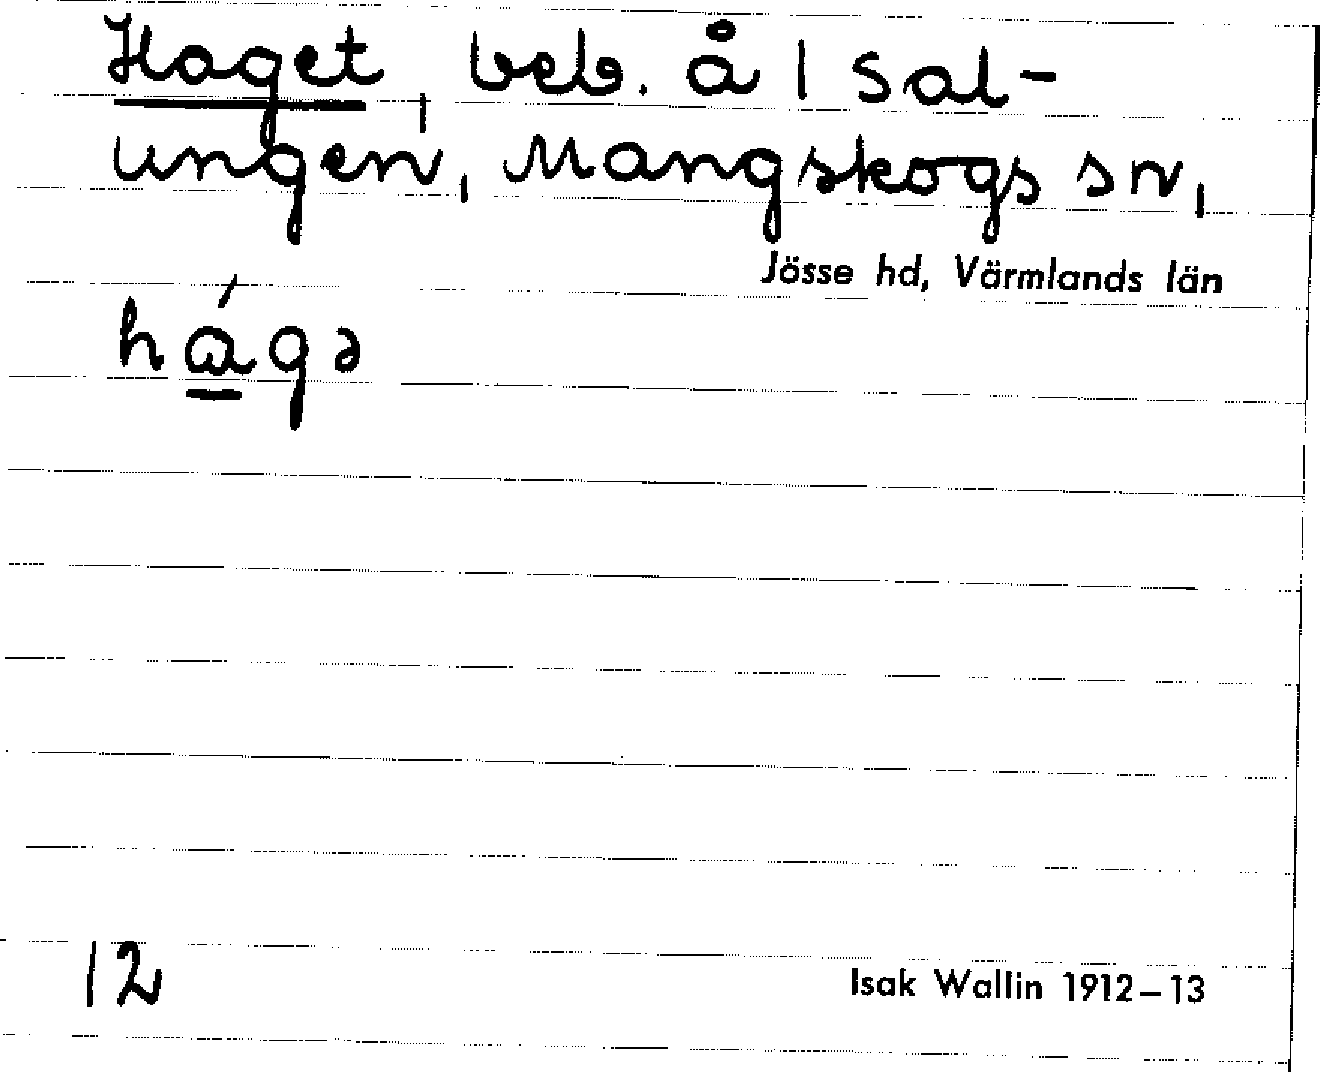 Haget, beb. å 1 Sal-
ungen, Mangskogs sn,
Jösse hd, Värmlands län
hágə
12
Isak Wallin 1912–13